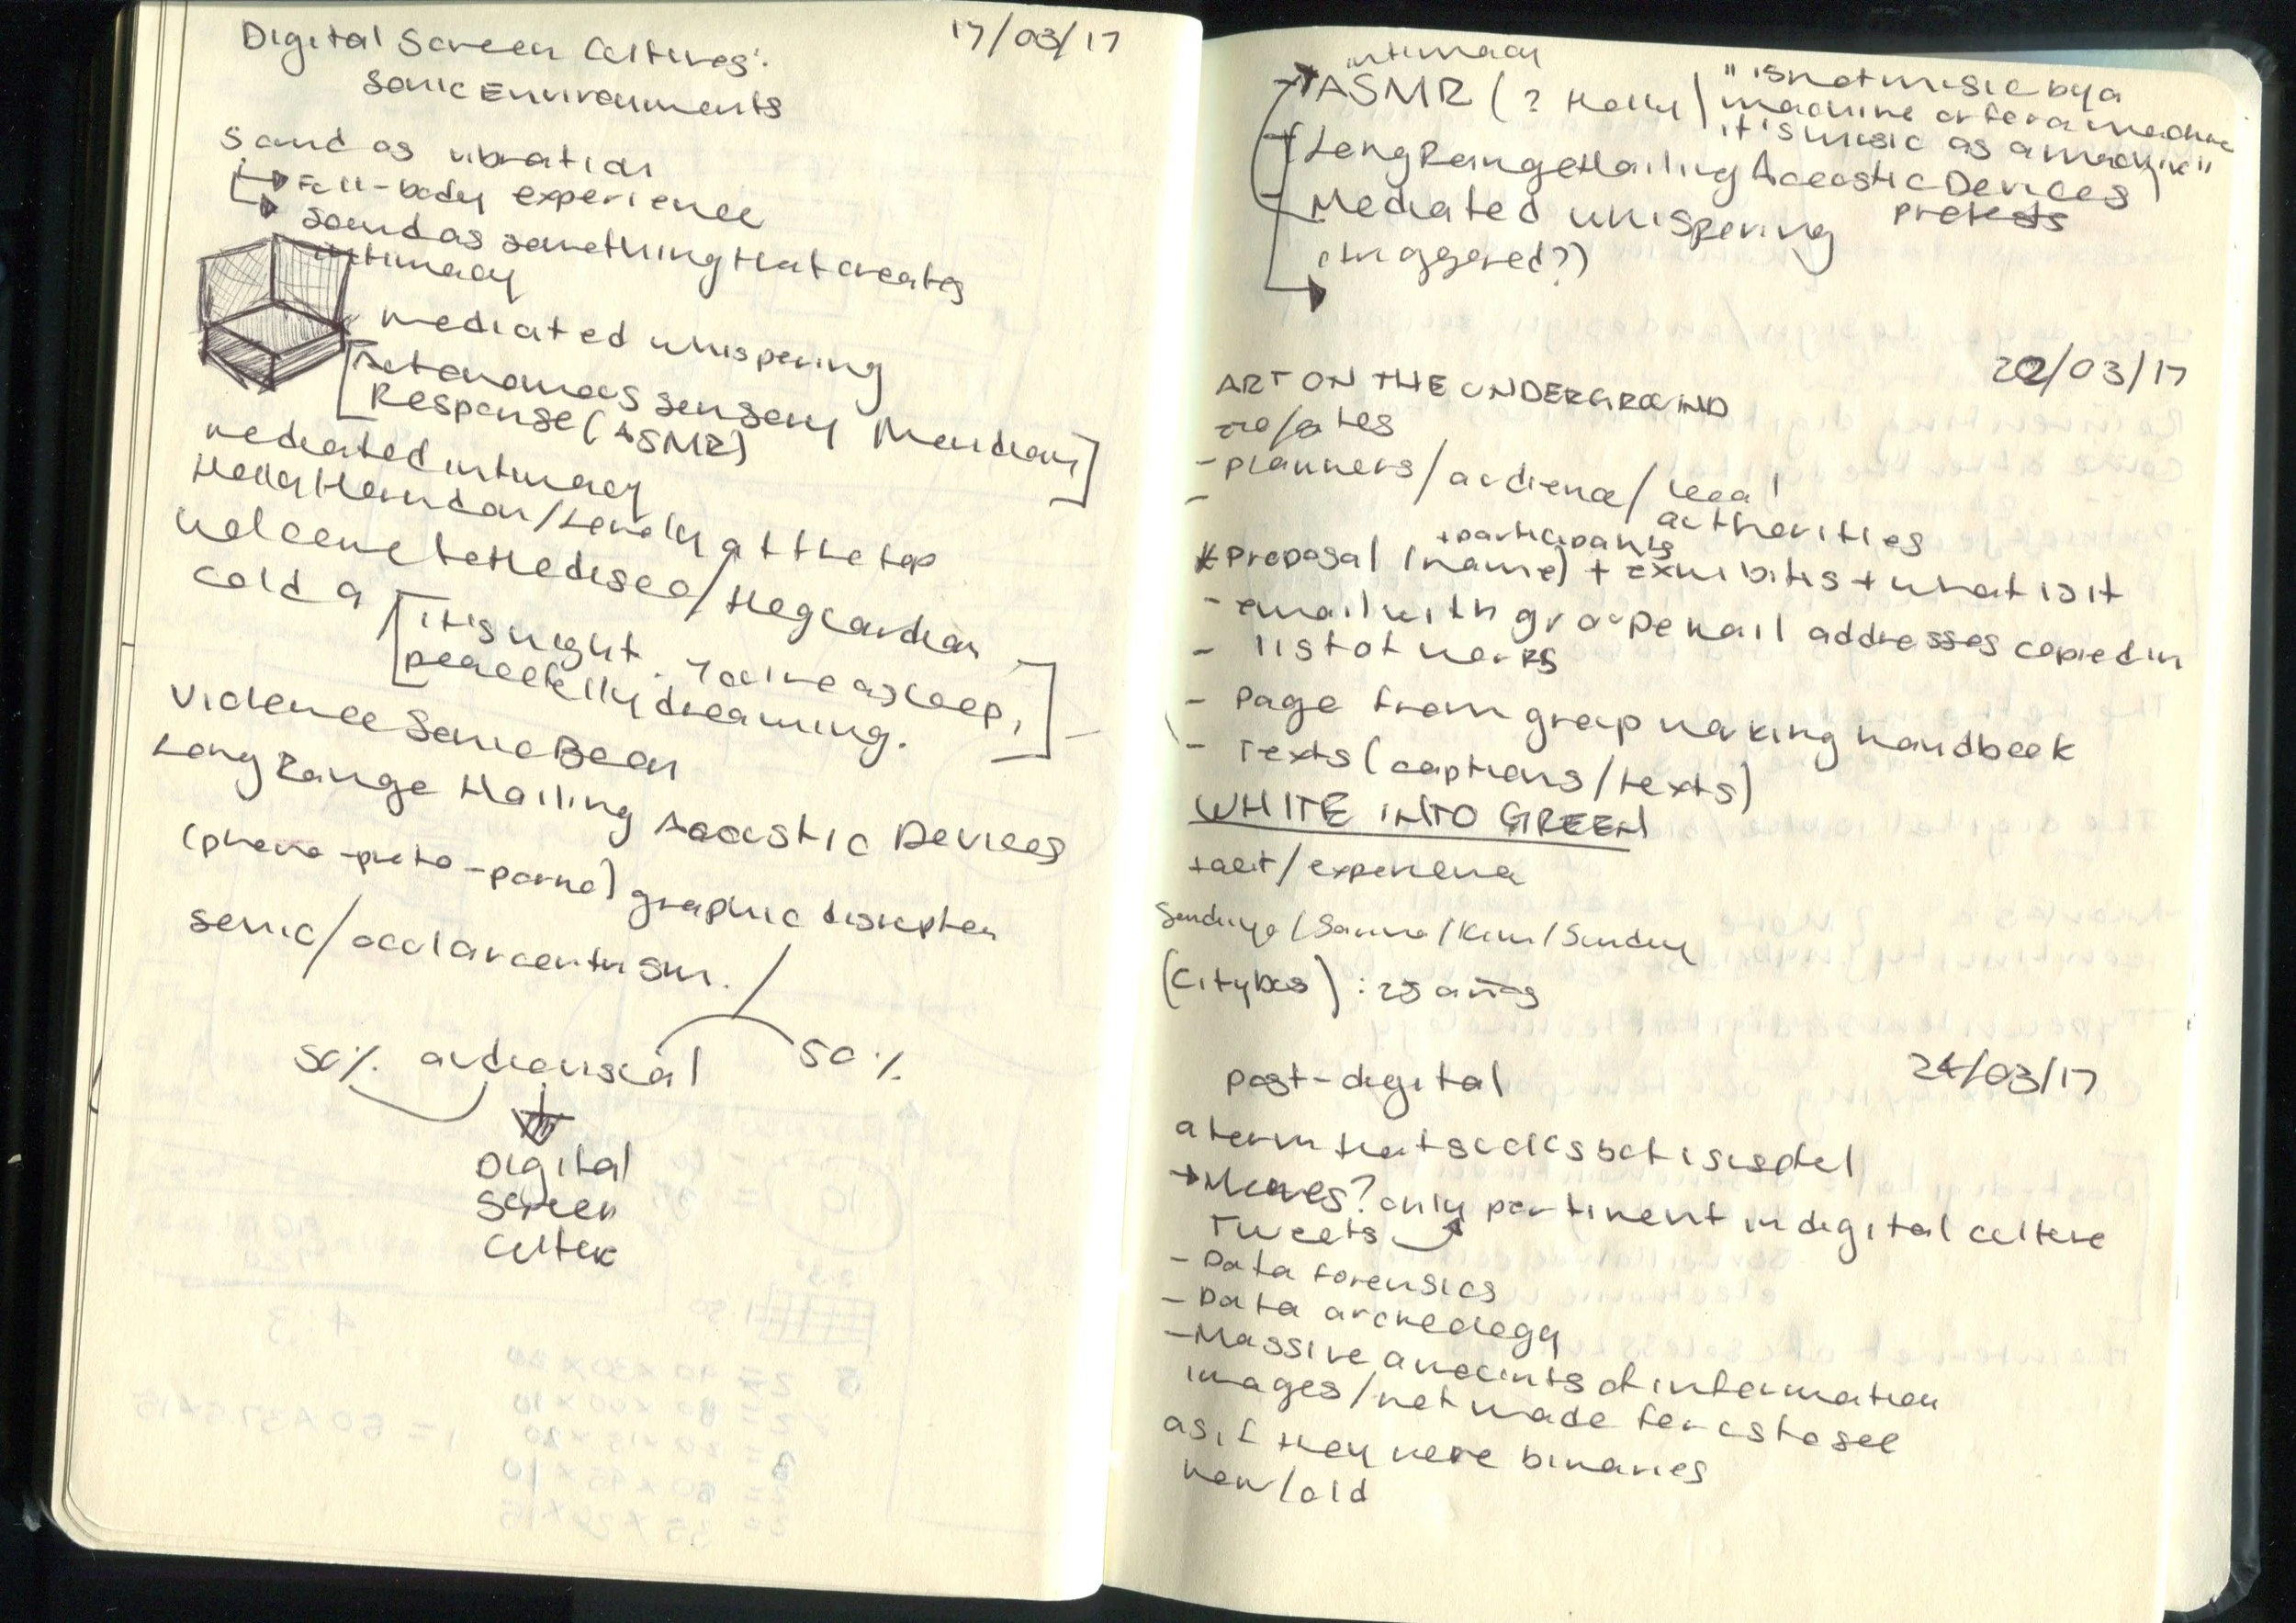 Digital Screen Cultures:
17/03/17
Sonic Environments
Sound as vibration
Full-body experience
Sound as something that creates
intimacy
mediated whispering
[Autonomous Sensory Meridian]
Response (ASMR)
mediated intimacy
Holly Herndon/Lonely at the top
Welcome to the disco/the guardian
cold a
[it's night. You're asleep,
peacefully dreaming.]
Violence Sonic Boom
Long Range Hailing Acoustic Devices
(phono-photo-porno) graphic disruption
sonic/ocularcentrism.
50% audiovisual 50%
Digital
Screen
Culture
intimacy
ASMR (? Holly) "is not music by a
machine or for a machine
it's music as a machine"
(Long Range Hailing Acoustic Devices)
Mediated whispering protests
(triggered?)
22/03/17
ART ON THE UNDERGROUND
- planners/audience/local
authorities
+participants
* proposal (name) + exhibits + what is it
- email with group email addresses copied in
- list of works
- page from group making handbook
- Texts (captions/texts)
WHITE INTO GREEN
tacit/experience
(Citybus): 25 años
24/03/17
post-digital
a term that sucks but is useful
→Memes? only pertinent in digital culture
Tweets
- Data forensics
- Data archeology
- Massive amounts of information
images/not made for us to see
as if they were binaries
new/old